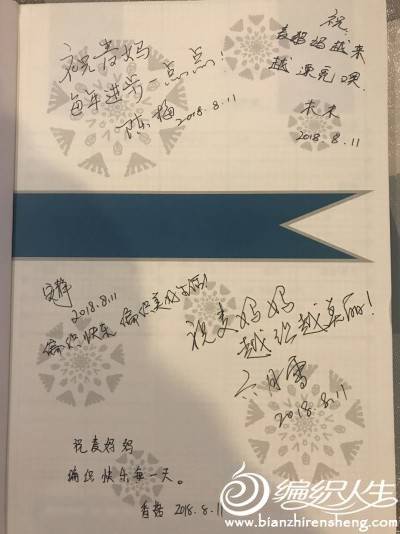 祝麦妈
每年进步一点点!
陈梅 2018.8.11
祝
麦妈妈越来
越漂亮噢.
木木
2018.8.11
安静
2018.8.11
编织快乐 编织美好生活!
祝麦妈妈
越织越美丽!
六月雪
2018.8.11
祝麦妈妈
编织快乐每一天。
香菇 2018.8.11
编织人生
www.bianzhirensheng.com